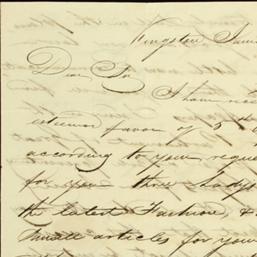 Kingston, Jama
Dear Sir
I have rec
esteemed favor of 5th
according to your reque
for you three Ladys
the latest Fashion, &
Small articles for your